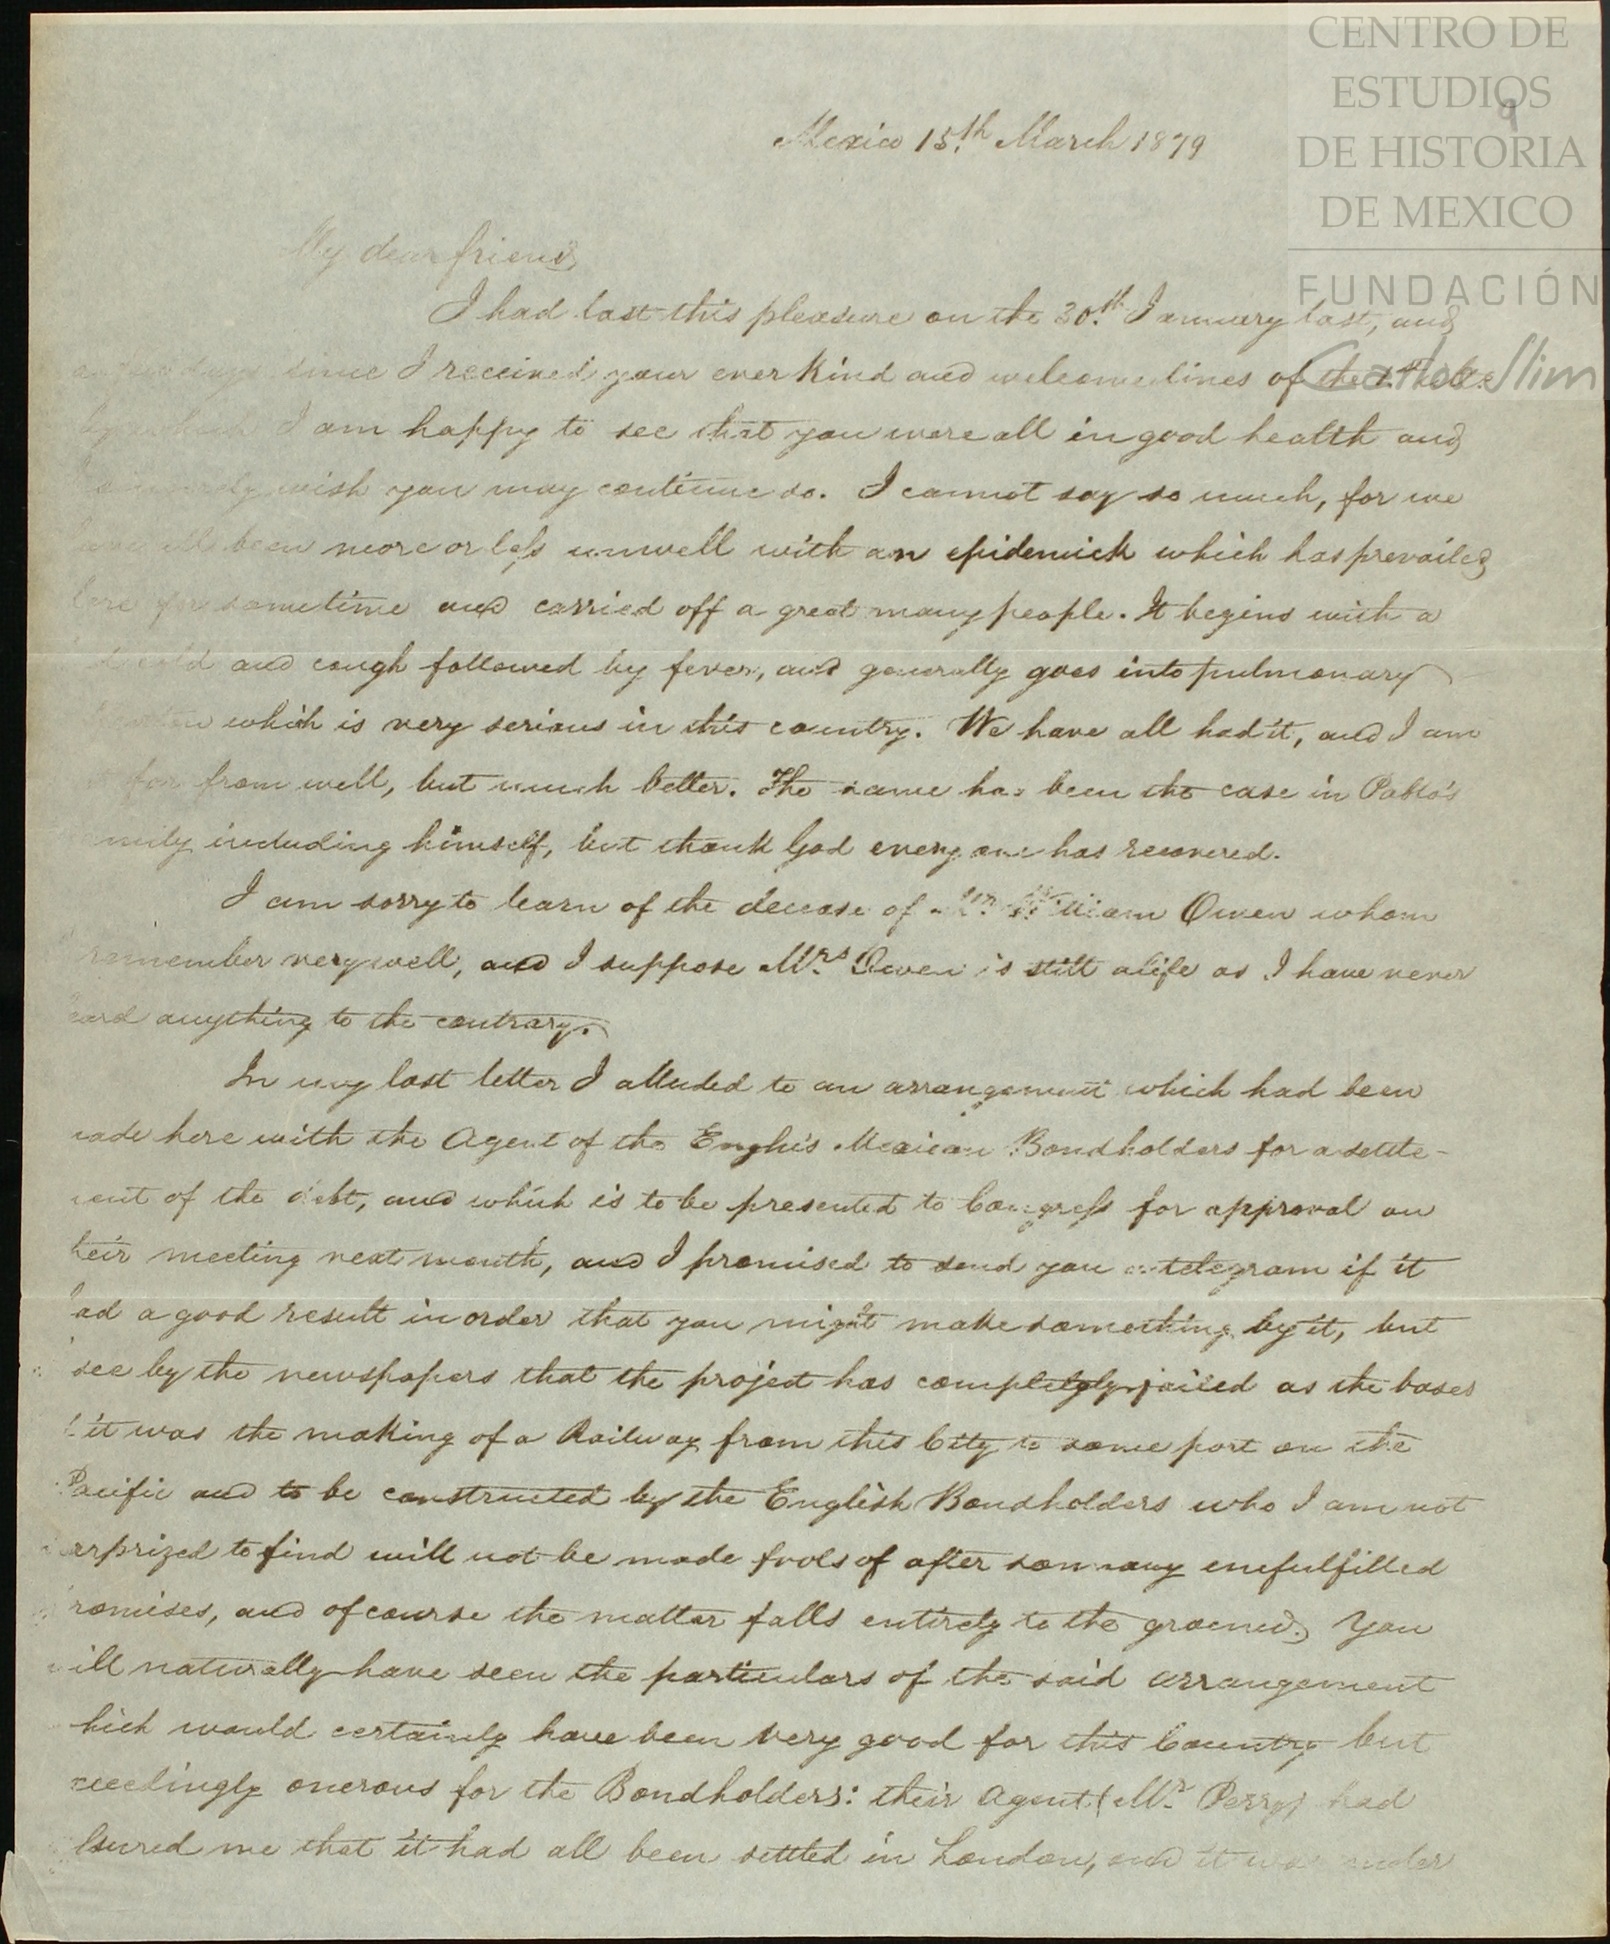 CENTRO DE
ESTUDIOS
DE HISTORIA
DE MEXICO
FUNDACIÓN
Carlos Slim
9
Mexico 15th March 1879
My dear friend,
I had last this pleasure on the 30th January last, and
days since I received your ever kind and welcome lines of the
I am happy to see that you were all in good health and
sincerely wish you may continue so. I cannot say so much, for we
have all been more or less unwell with an epidemick which has prevailed
here for sometime and carried off a great many people. It begins with a
cold and cough followed by fever, and generally goes into pulmonary
which is very serious in this country. We have all had it, and I am
far from well, but much better. The same has been the case in Pablo's
amily including himself, but thank God every one has recovered.
I am sorry to learn of the decease of Mr. William Owen whom
remember very well, and I suppose Mrs. Owen is still alife as I have never
eard anything to the contrary.
In my last letter I alluded to an arrangement which had been
made here with the Agent of the Englis Mexican Bondholders for a settle-
ment of the debt, and which is to be presented to Congress for approval on
their meeting next month, and I promised to send you a telegram if it
had a good result in order that you might make something by it, but
see by the newspapers that the project has completely failed as the bases
it was the making of a Railway from this City to some port on the
Pacific and to be constructed by the English Bondholders who I am not
surprized to find will not be made fools of after so many unfulfilled
romises, and of course the matter falls entirely to the ground. You
will naturally have seen the particulars of the said arrangement
hich would certainly have been very good for this Country but
ceedingly onerous for the Bondholders: their Agent (Mr. Perry) had
ssured me that it had all been settled in London, and it was under